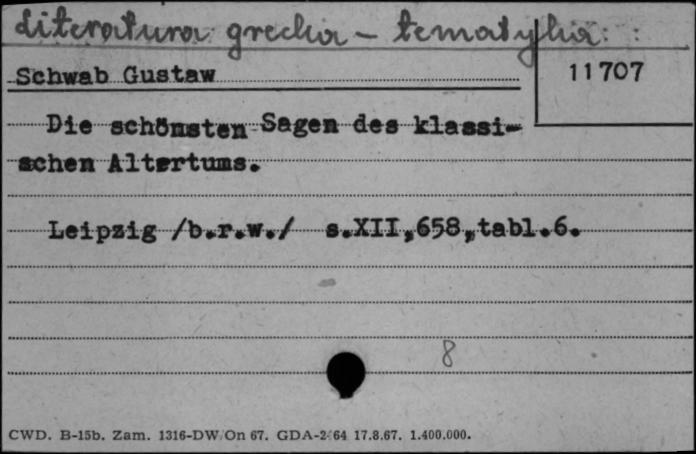 Literatura grecka - tematyka:
Schwab Gustaw
11707
Die schönsten Sagen des klassi-
schen Altertums.
Leipzig /b.r.w./ s.XII,658,tabl.6.
8
CWD. B-15b. Zam. 1316-DW/On 67. GDA-2/64 17.8.67. 1.400.000.